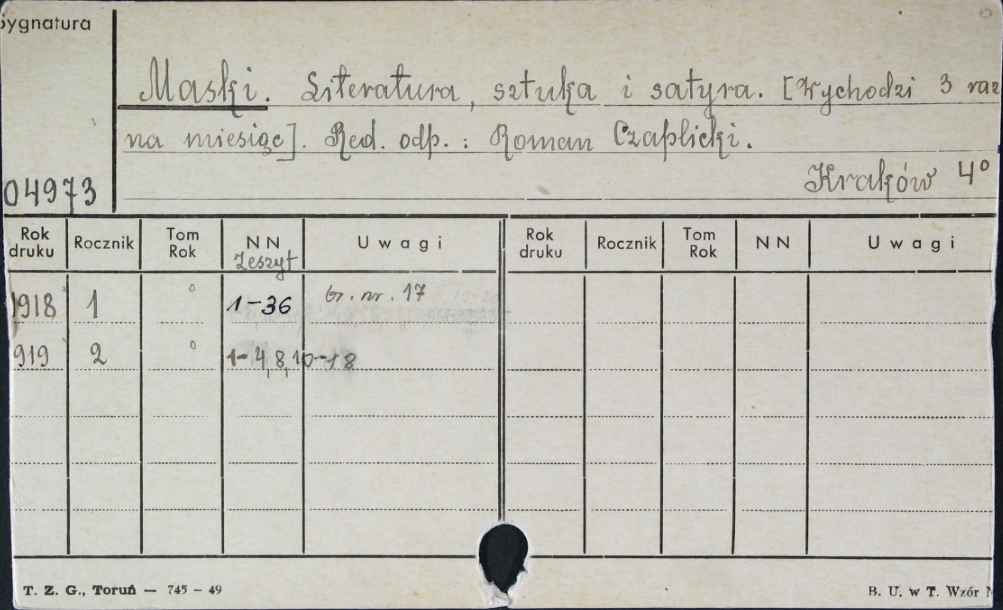 Sygnatura
Maski. Literatura, sztuka i satyra. [Wychodzi 3 raz
na miesiąc]. Red. odp.: Roman Czaplicki.
04973
Kraków 4°
Rok druku Rocznik Tom Rok NN Zeszyt Uwagi Rok druku Rocznik Tom Rok NN Uwagi
1918 1 ° 1-36 br. nr. 17
919 2 ° 1-4,8,10-18
T. Z. G., Toruń — 745 — 49
B. U. w T. Wzór